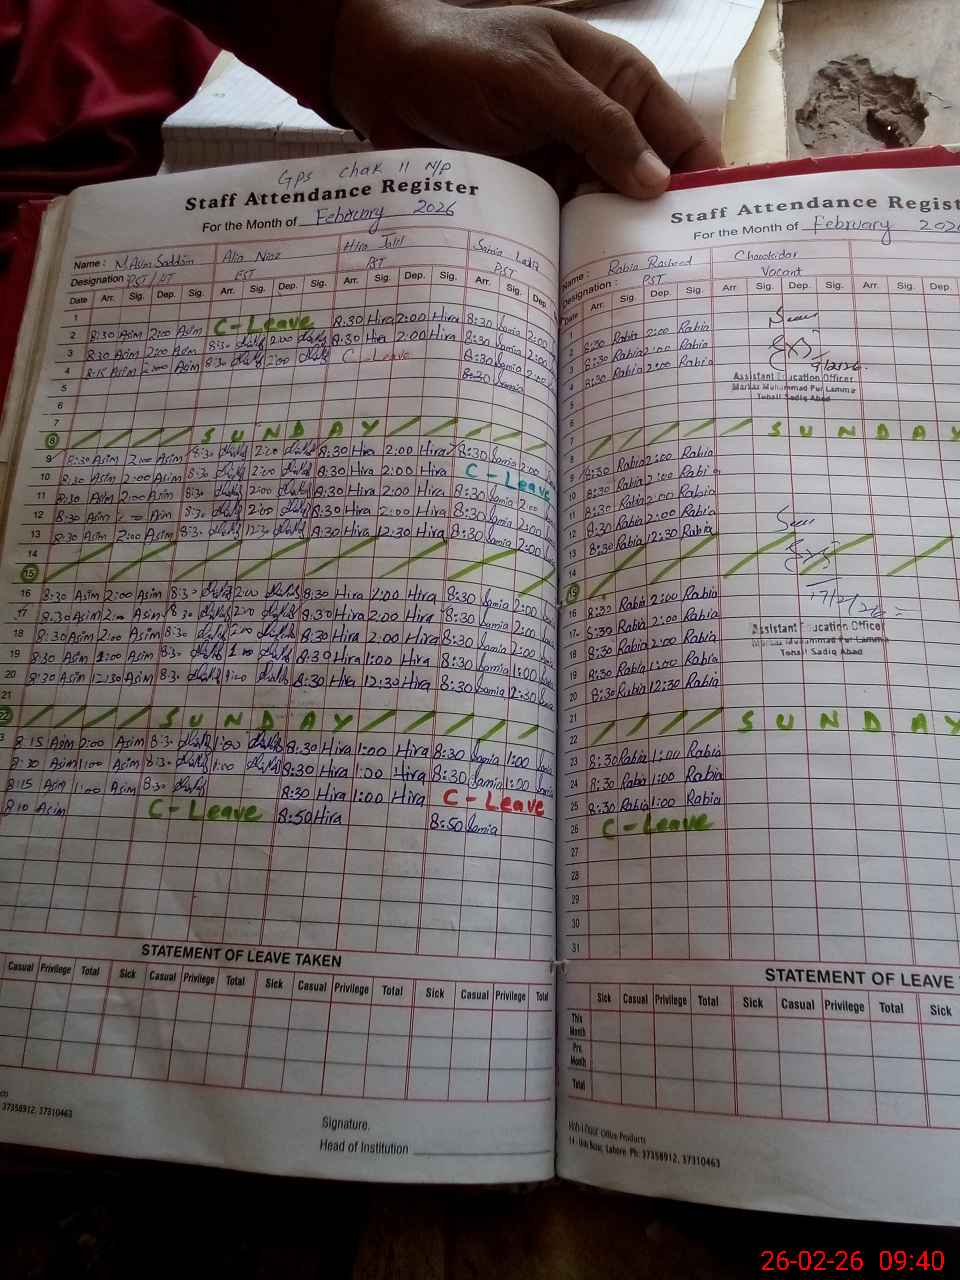 GPS Chak 11 N/P
Staff Attendance Register
For the Month of February 2026
Name : M Asim Saddam Alia Niaz Hira Jalil Samia Latif
Designation PST / HT EST PST PST
Date Arr. Sig. Dep. Sig. Arr. Sig. Dep. Sig. Arr. Sig. Dep. Sig. Arr. Sig. Dep.
1
2 8:30 Asim 2:00 Asim C-Leave 8:30 Hira 2:00 Hira 8:30 Samia 2:00
3 8:30 Asim 2:00 Asim 8:30 2:00 8:30 Hira 2:00 Hira 8:30 Samia 2:00
4 8:15 Asim 2:00 Asim 8:30 2:00 C-Leave 8:30 Samia 2:00
5 8:30 Samia
6
7
8 SUNDAY
9 8:30 Asim 2:00 Asim 8:30 2:00 8:30 Hira 2:00 Hira 8:30 Samia 2:00
10 8:30 Asim 2:00 Asim 8:30 2:00 8:30 Hira 2:00 Hira C-Leave
11 8:30 Asim 2:00 Asim 8:30 2:00 8:30 Hira 2:00 Hira 8:30 Samia 2:00
12 8:30 Asim 2:00 Asim 8:30 2:00 8:30 Hira 2:00 Hira 8:30 Samia 2:00
13 8:30 Asim 2:00 Asim 8:30 12:30 8:30 Hira 12:30 Hira 8:30 Samia 2:00
14
15
16 8:30 Asim 2:00 Asim 8:30 2:00 8:30 Hira 2:00 Hira 8:30 Samia 2:00
17 8:30 Asim 2:00 Asim 8:30 2:00 8:30 Hira 2:00 Hira 8:30 Samia 2:00
18 8:30 Asim 2:00 Asim 8:30 2:00 8:30 Hira 2:00 Hira 8:30 Samia 2:00
19 8:30 Asim 1:00 Asim 8:30 1:00 8:30 Hira 1:00 Hira 8:30 Samia 1:00
20 8:30 Asim 12:30 Asim 8:30 8:30 Hira 12:30 Hira 8:30 Samia
21
22 SUNDAY
3 8:15 Asim 2:00 Asim 8:30 1:00 8:30 Hira 1:00 Hira 8:30 Samia 1:00
8:30 Asim 1:00 Asim 8:30 1:00 8:30 Hira 1:00 Hira 8:30 Samia 1:00
8:15 Asim 1:00 Asim 8:30 8:30 Hira 1:00 Hira C-Leave
8:10 Asim C-Leave 8:50 Hira 8:50 Samia
STATEMENT OF LEAVE TAKEN
Casual Privilege Total Sick Casual Privilege Total Sick Casual Privilege Total Sick Casual Privilege Total
37358912, 37310463
Signature.
Head of Institution
Staff Attendance Regist
For the Month of February 202
Name : Rabia Rasheed Chowkidar
Designation : PST Vacant
Date Arr. Sig. Dep. Sig. Arr. Sig. Dep. Sig. Arr. Sig. Dep.
1
2 8:30 Rabia 2:00 Rabia
3 8:30 Rabia 2:00 Rabia
4 8:30 Rabia 2:00 Rabia
Assistant Education Officer
Markaz Muhammad Pur Lamma
Tehsil Sadiq Abad
5
6
7
SUNDAY
8
9 8:30 Rabia 2:00 Rabia
10 8:30 Rabia 2:00 Rabia
11 8:30 Rabia 2:00 Rabia
12 8:30 Rabia 2:00 Rabia
13 8:30 Rabia 12:30 Rabia
14
15
17/2/26
16 8:30 Rabia 2:00 Rabia
17 8:30 Rabia 2:00 Rabia
Assistant Education Officer
Markaz Muhammad Pur Lamma
Tehsil Sadiq Abad
18 8:30 Rabia 2:00 Rabia
19 8:30 Rabia 1:00 Rabia
20 8:30 Rabia 12:30 Rabia
21
SUNDAY
22
23 8:30 Rabia 1:00 Rabia
24 8:30 Rabia 1:00 Rabia
25 8:30 Rabia 1:00 Rabia
26 C-Leave
27
28
29
30
31
STATEMENT OF LEAVE
Sick Casual Privilege Total Sick Casual Privilege Total Sick
This Month
Pre Month
Total
Office Products
Lahore. Ph: 37358912, 37310463
26-02-26 09:40